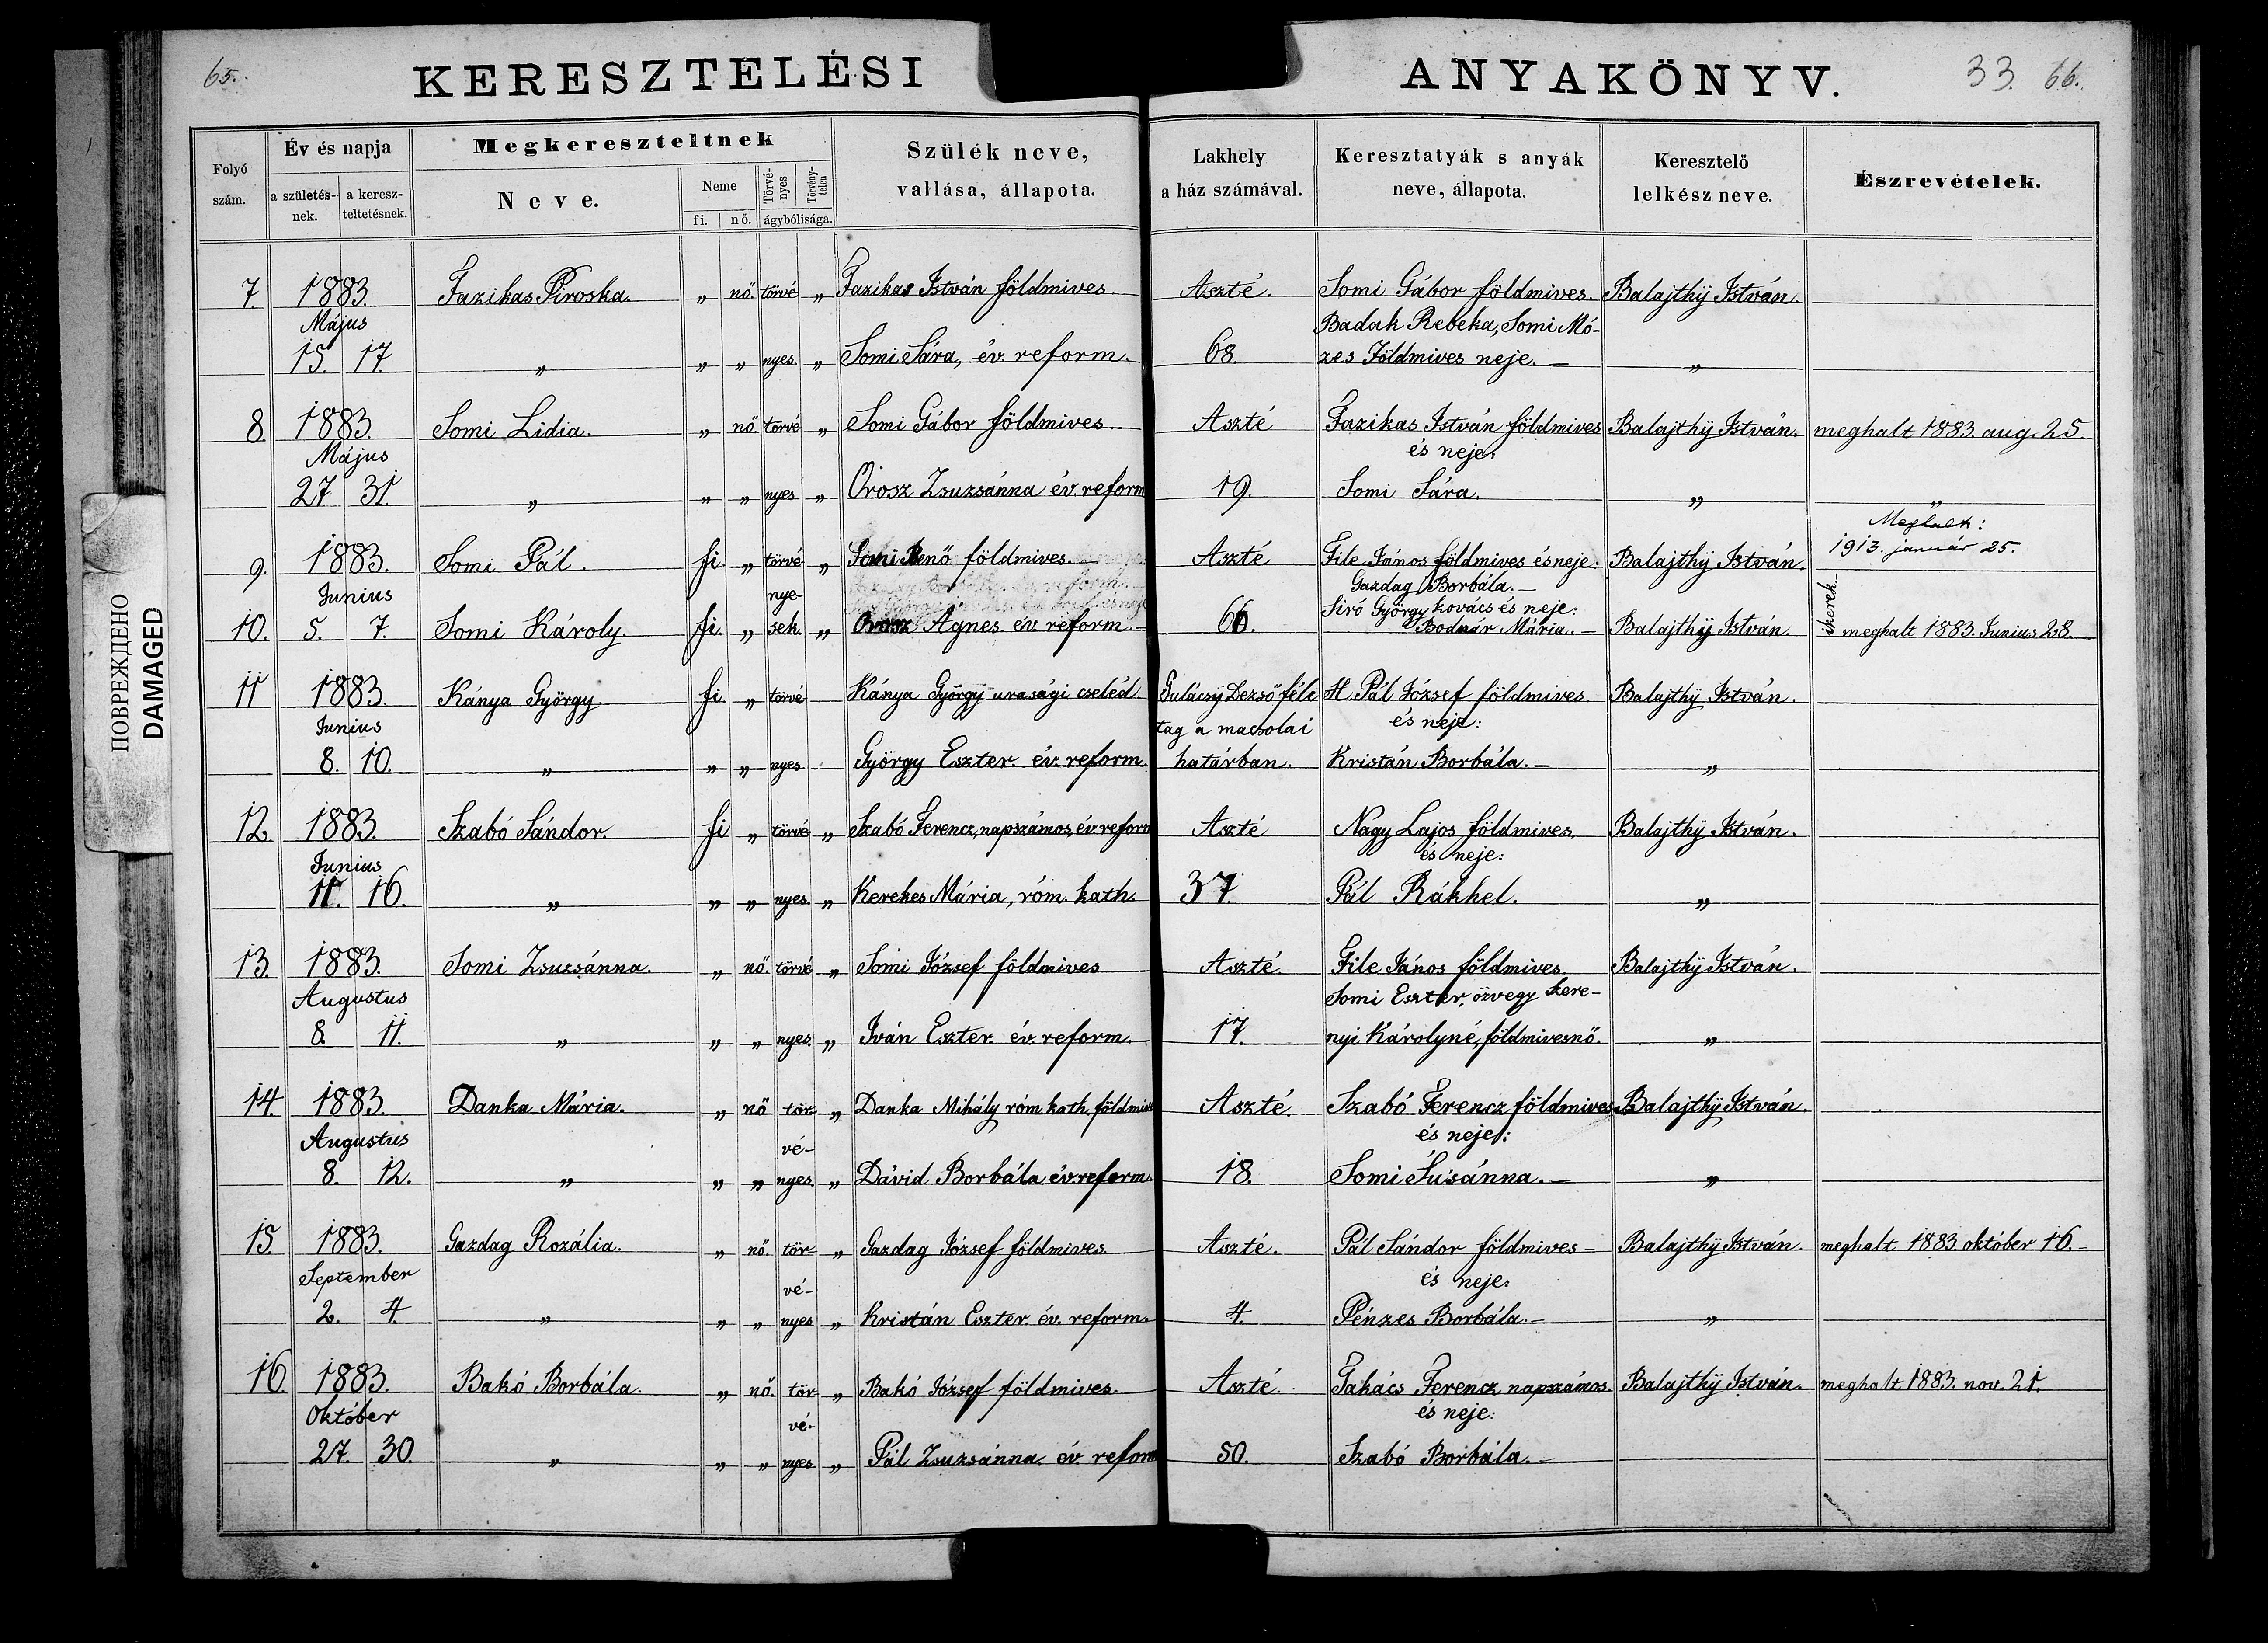 65.
KERESZTELÉSI
ANYAKÖNYV.
33. 66.
ПОВРЕЖДЕНО
DAMAGED
Folyó szám.
Év és napja
a születés-nek.
a keresz-teltetésnek.
Megkereszteltnek
Neve.
Neme
fi. nő.
Törvé-nyes
Törvény-telen
ágybólisága.
Szülék neve,
vallása, állapota.
Lakhely
a ház számával.
Keresztatyák s anyák
neve, állapota.
Keresztelő
lelkész neve.
Észrevételek.
7. 1883. Fazikas Piroska. „ nő. törvé „ Fazikas István földmives Aszté. Somi Gábor földmives. Balajthÿ István.
Május Badak Rebeka, Somi Mó-
15. 17. „ „ „ nyes. „ Somi Sára, év. reform. 68. zes Földmives neje. — „
8. 1883. Somi Lidia. „ nő törvé „ Somi Gábor földmives Aszté Fazikas István földmives Balajthÿ István. meghalt 1883. aug. 25.
Május és neje:
27 31. „ „ „ nyes „ Orosz Zsuzsánna év. reform 19. Somi Sára. „ „
Meghalt:
1913. január 25.
9. 1883. Somi Pál. fi. „ törvé „ Somi Benő földmives. — Aszté File János földmives és neje: Balajthÿ István.
Junius nye- Gazdag Borbála. —
Siró György kovács és neje:
10. 5. 7. Somi Károly. fi. „ sek „ Orosz Agnes év reform. — 66. Bodnár Mária. — Balajthÿ István. ikerek meghalt 1883. Junius 28. —
11 1883. Kánya György fi. „ törvé Kánya György urasági cseléd Gulácsÿ Dezső féle H. Pál József földmives Balajthÿ István.
Junius tag a macsolai és neje:
8. 10. „ „ „ nyes György Eszter év. reform. határban. Kristán Borbála. — „
12. 1883. Szabó Sándor. fi „ törvé „ Szabó Ferencz, napszámos, év. reform Aszté Nagy Lajos földmives. Balajthÿ István.
Junius és neje:
11. 16. „ „ „ nyes. „ Kerekes Mária, róm. kath. 37. Pál Rákhel. „
13. 1883. Somi Zsuzsánna. „ nő. törvé „ Somi József földmives Aszté. File János földmives. Balajthÿ István.
Augustus Somi Eszter, özvegy Szere-
8. 11. „ „ „ nyes. „ Iván Eszter év. reform. 17. nyi Károlyné, földmivesnő. „
14. 1883. Danka Mária. „ nő tör „ Danka Mihály róm. kath. földmives Aszté. Szabó Ferencz földmives Balajthÿ István.
Augustus vé- és neje:
8. 12. „ „ „ nyes. „ Dávid Borbála év. reform. 18. Somi Susánna. — „
15 1883. Gazdag Rozália. „ nő. tör „ Gazdag József földmives. Aszté. Pál Sándor földmives — Balajthÿ István. meghalt 1883 október 16. —
September vé- és neje:
2. 4. „ „ „ nyes „ Kristán Eszter év. reform. 4. Pénzes Borbála. — „
16. 1883. Bakó Borbála. „ nő. tör „ Bakó József földmives. Aszté. Takács Ferencz napszámos. Balajthÿ István. meghalt 1883. nov. 21.
Október vé- és neje:
27. 30. „ „ „ nyes „ Pál Zsuzsánna. év. reform 50. Szabó Borbála. —